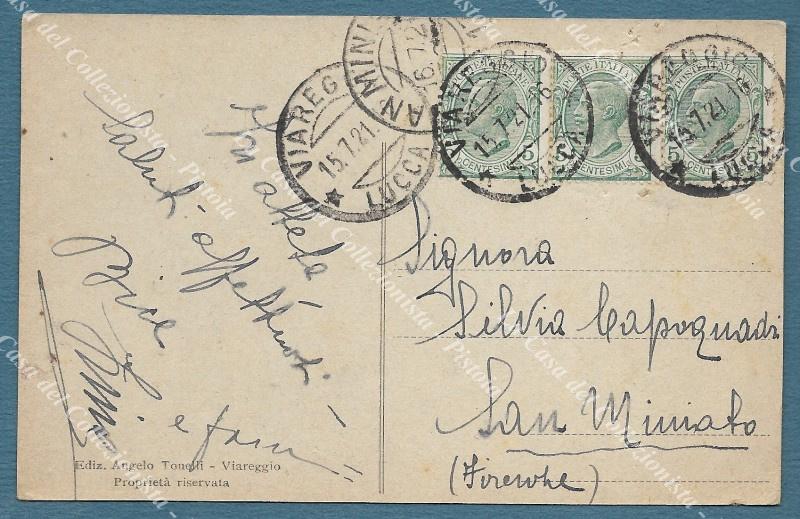 VIAREGGIO
15.7.21
LUCCA
SAN MINI
16.7.21
VIAREGGIO
15.7.21.16
LUCCA
VIAREGGIO
15.7.21.16
LUCCA
POSTE ITALIANE
CENTESIMI 5
POSTE ITALIANE
CENTESIMI 5
POSTE ITALIANE
CENTESIMI 5
In attesa
Saluti affettuosi
Bice
e fam
Signora
Silvia Capoquadri
San Miniato
(Firenze)
Ediz. Angelo Tonelli - Viareggio
Proprietà riservata
Casa del Collezionista - Pistoia